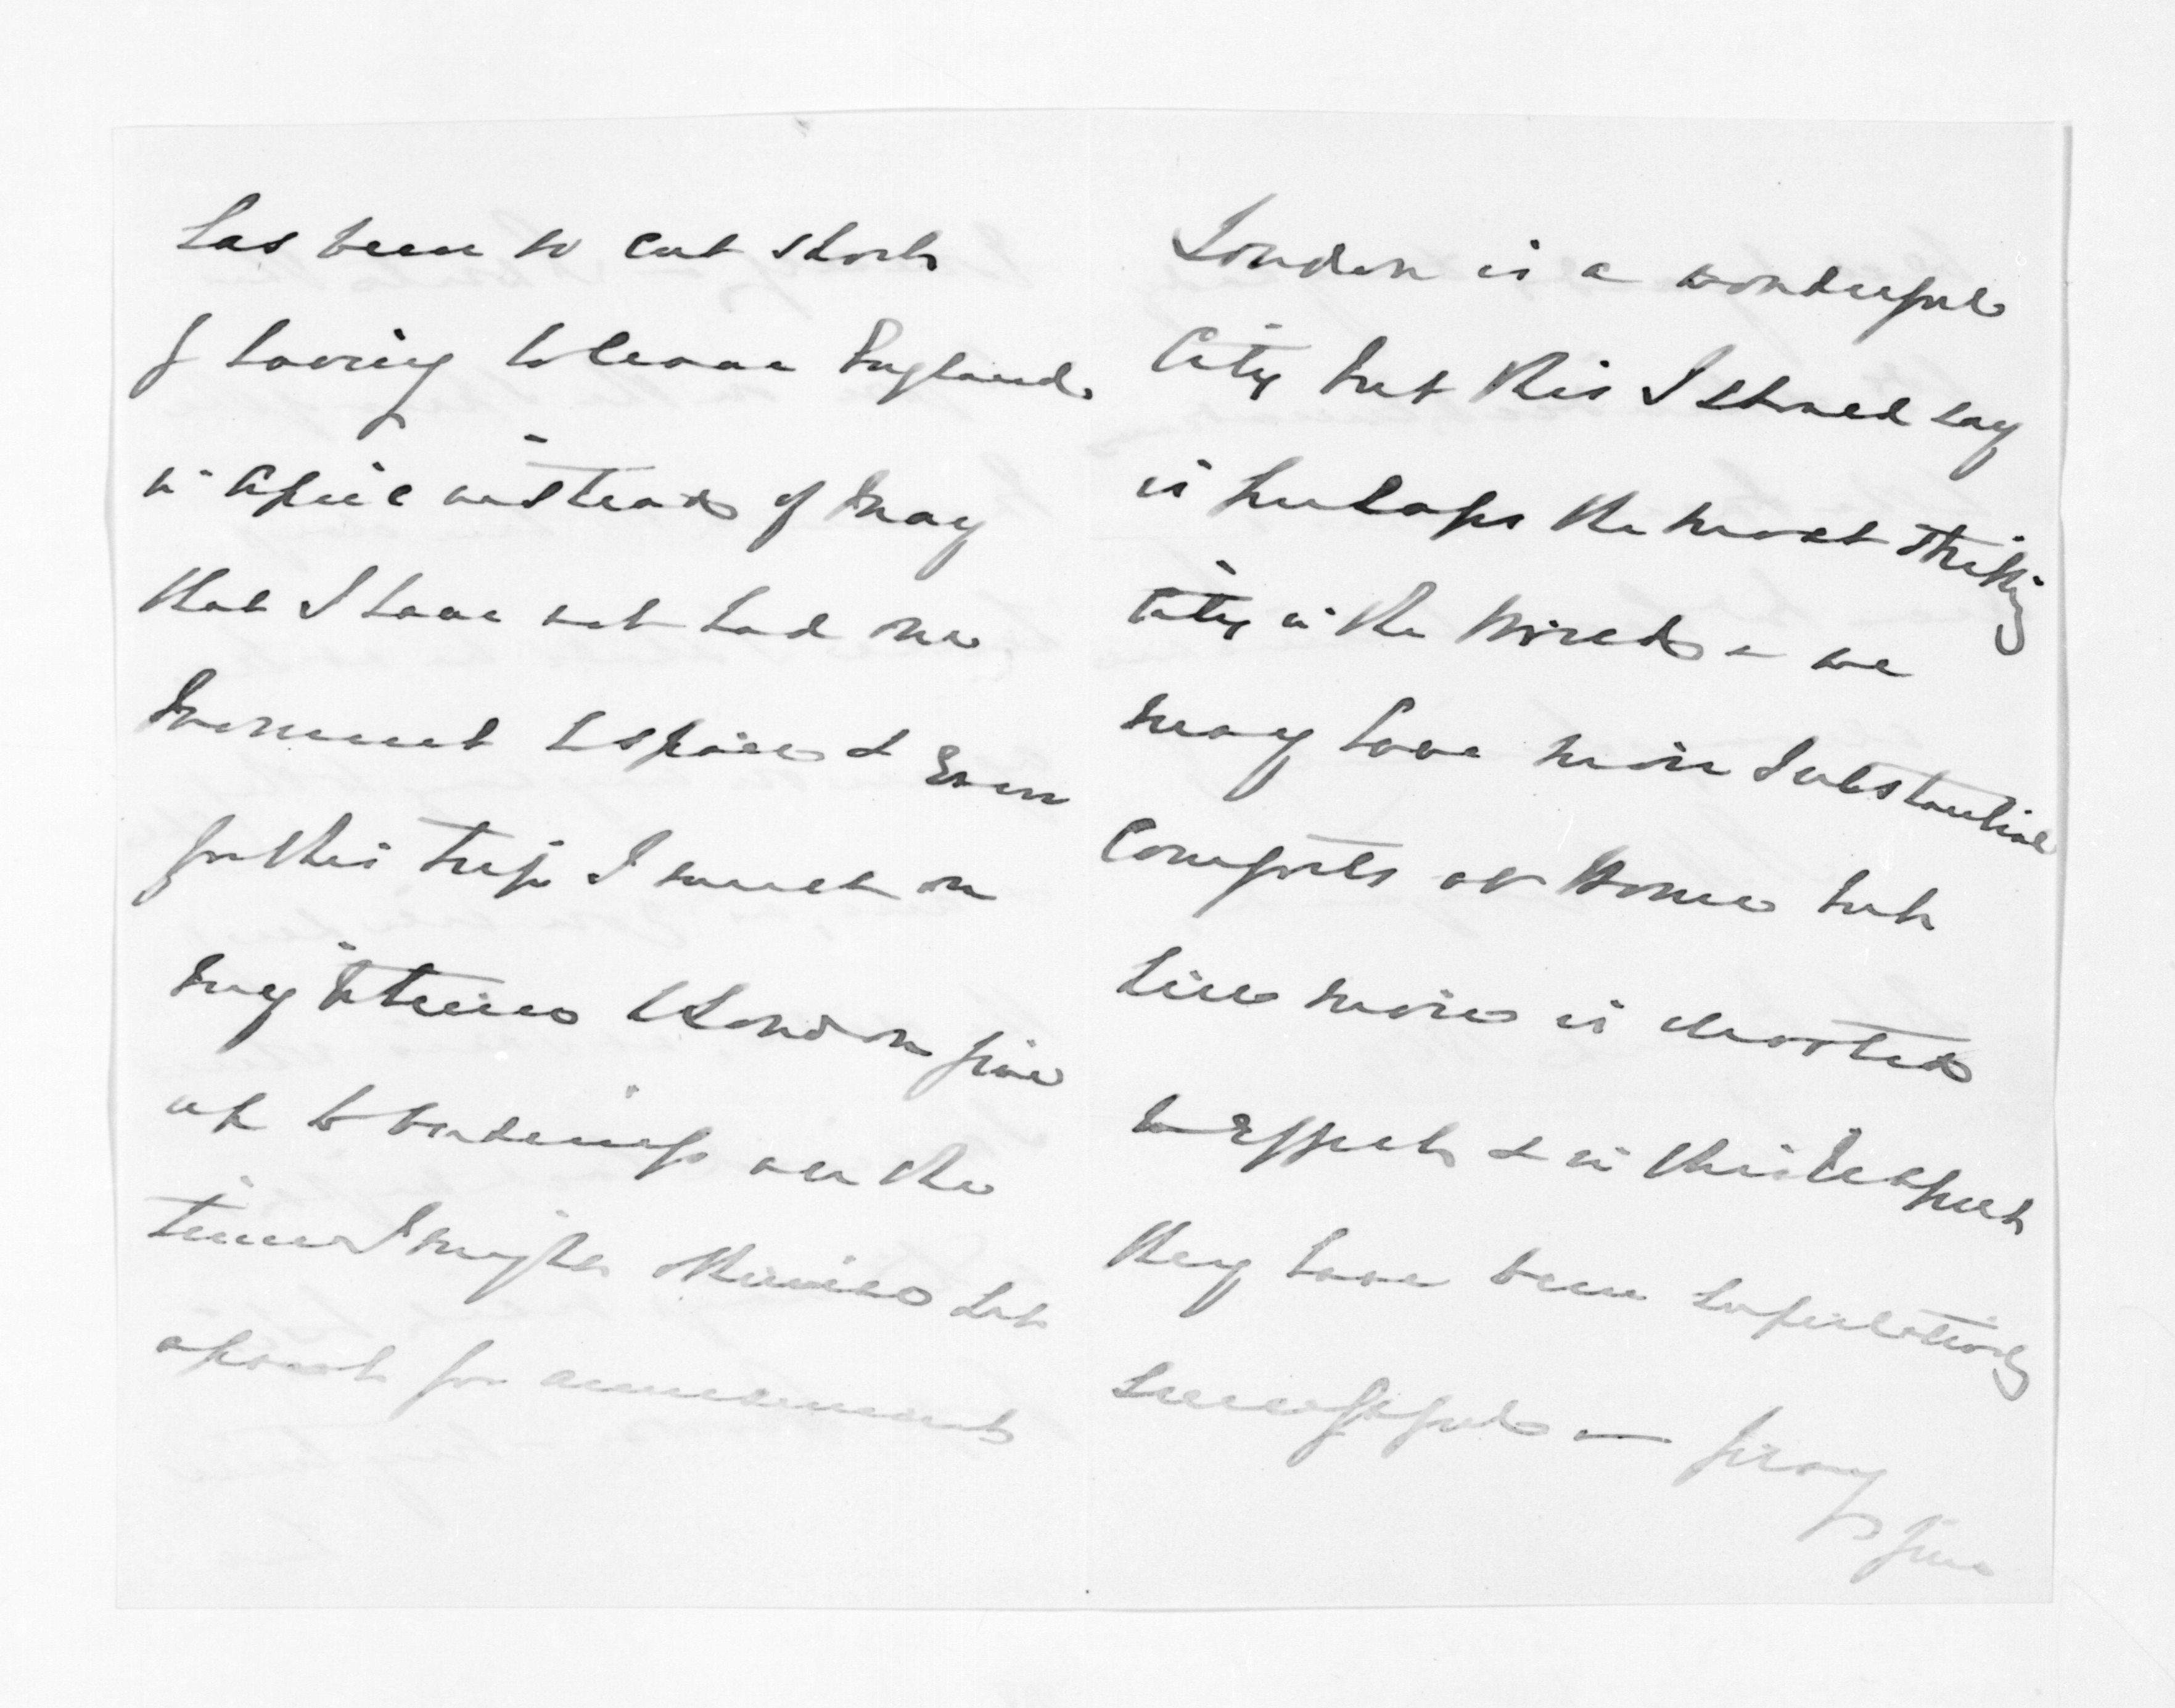 has been so cut short
of having to leave England
in April instead of May
that I have not had one
moment to spare & even
for this trip I must on
my return to London give
up to business all the
time I might otherwise set
apart for amusement
London is a wonderful
City but this I should say
is perhaps the most striking
City in the World - we
may have more substantial
Comforts at Home but
here more is devoted
to effect & in this respect
they have been superlatively
successful — pray
give